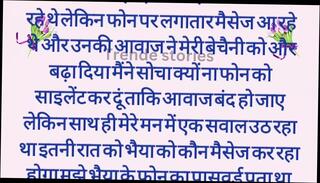 रहे थे लेकिन फोन पर लगातार मैसेज आ रहे
थे और उनकी आवाज ने मेरी बेचैनी को और
Trende stories
बढ़ा दिया मैंने सोचा क्यों ना फोन को
साइलेंट कर दूं ताकि आवाज बंद हो जाए
लेकिन साथ ही मेरे मन में एक सवाल उठ रहा
था इतनी रात को भैया को कौन मैसेज कर रहा
होगा मुझे भैया के फोन का पासवर्ड पता था